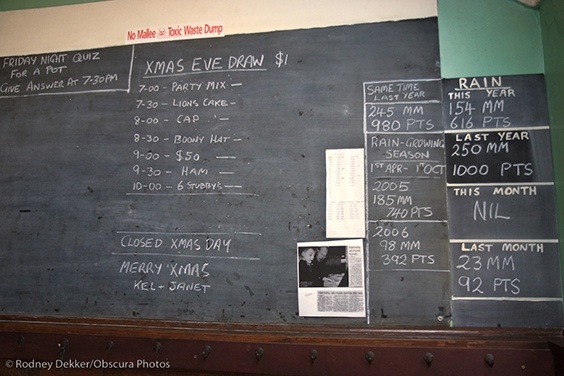 No Mallee Toxic Waste Dump
FRIDAY NIGHT QUIZ
FOR A POT
GIVE ANSWER AT 7-30PM
XMAS EVE DRAW $1
7-00 - PARTY MIX -
7-30 - LIONS CAKE -
8-00 - CAP -
8-30 - BOONY HAT -
9-00 - $50 -
9-30 - HAM -
10-00 - 6 STUBBY'S -
CLOSED XMAS DAY
MERRY XMAS
KEL - JANET
SAME TIME
LAST YEAR
245 MM
980 PTS
RAIN-GROWING
SEASON
1ST APR - 1ST OCT
2005
185 MM
740 PTS
2006
98 MM
392 PTS
RAIN
THIS YEAR
154 MM
616 PTS
LAST YEAR
250 MM
1000 PTS
THIS MONTH
NIL
LAST MONTH
23 MM
92 PTS
© Rodney Dekker/Obscura Photos